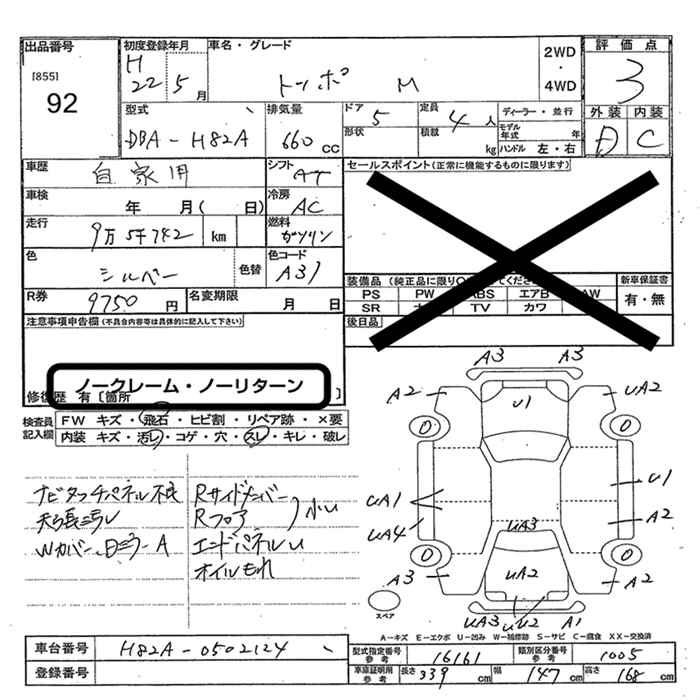 出品番号
[855]
92
初度登録年月
H22 5月
車名・グレード
トッポ M
2WD
・
4WD
評価点
3
外装 内装
D C
型式
DBA-H82A
排気量
660 cc
ドア 5
形状
定員 4人
積載 kg
ディーラー・並行
モデル年式 年
ハンドル 左・右
車歴
自家用
シフト
AT
セールスポイント(正常に機能するものに限ります)
車検
年 月( 日)
冷房
AC
走行
9万5千742 km
燃料
ガソリン
色
シルバー
色替
色コード
A31
装備品(純正品に限り
新車保証書
有・無
PS PW ABS エアB AW
SR TV カワ
後日品
R券
9750円
名変期限
月 日
注意事項申告欄(不具合内容等は具体的に記入して下さい)
ノークレーム・ノーリターン
修復歴 有 [箇所 ]
検査員記入欄
FW キズ・飛石・ヒビ割・リペア跡・×要
内装 キズ・汚レ・コゲ・穴・スレ・キレ・破レ
ナビタッチパネル不良
Rサイドメンバー
Rフロア
小U
Wカバー、日ミラーA
エンドパネルU
オイルもれ
A3 A3
A2 U1 UA2
0 0
UA1 U1
UA4 UA3 A2
0 0
A3 UA2 A2
UA3 U2 A1
スペア
A-キズ E-エクボ U-凹み W-補修跡 S-サビ C-腐食 XX-交換済
車台番号
H82A-0502124
登録番号
型式指定番号参考
16161
類別区分番号参考
1005
車庫証明用参考
長さ 339 cm
幅 147 cm
高さ 168 cm